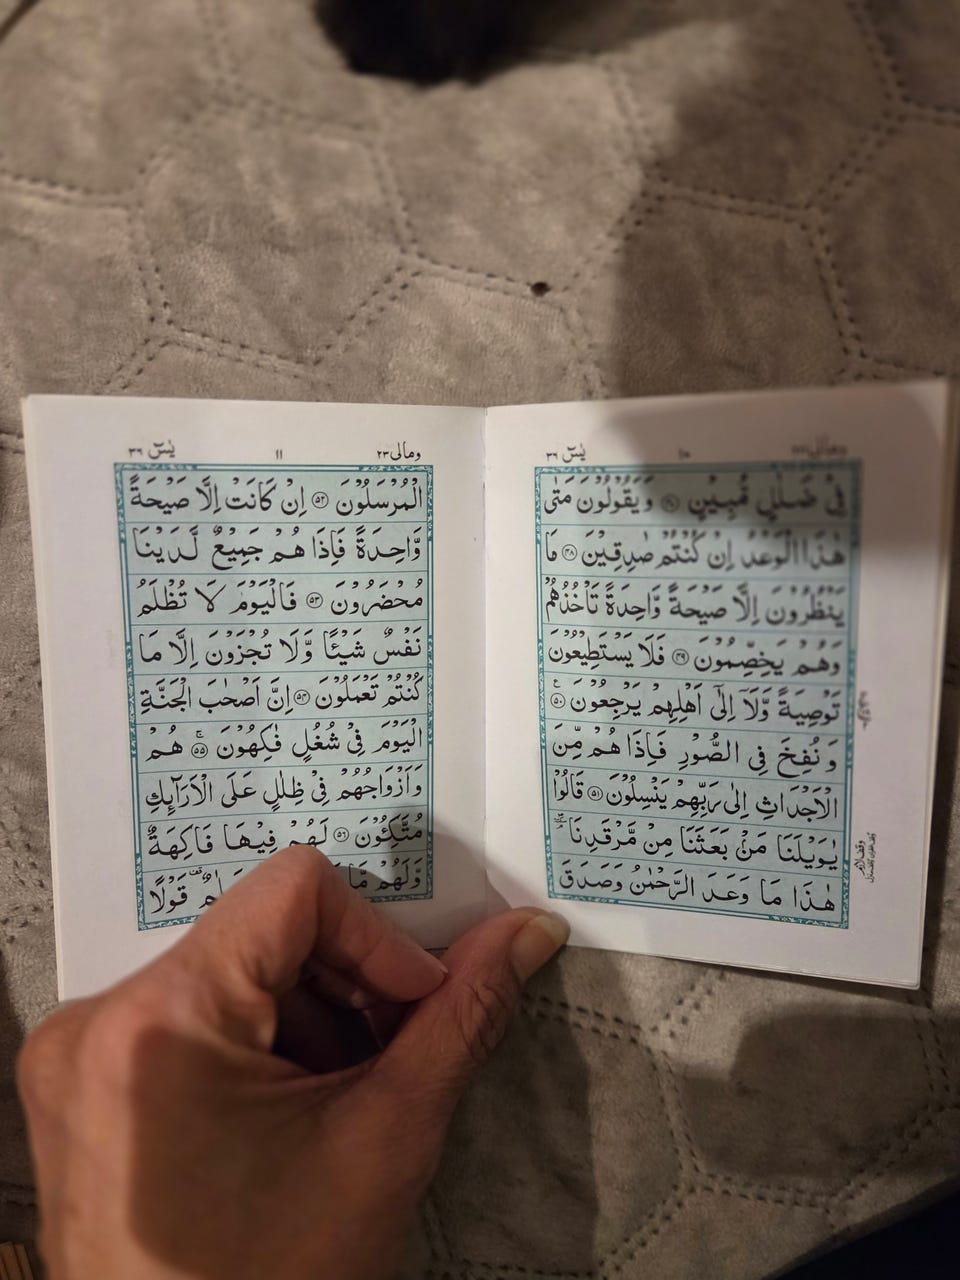 یٰسٓ ٣٦
١٠
فِیْ ضَلٰلٍ مُّبِیْنٍ ﴿٤٧﴾ وَیَقُوْلُوْنَ مَتٰی
هٰذَا الْوَعْدُ اِنْ كُنْتُمْ صٰدِقِیْنَ ﴿٤٨﴾ مَا
یَنْظُرُوْنَ اِلَّا صَیْحَةً وَّاحِدَةً تَاْخُذُهُمْ
وَهُمْ یَخِصِّمُوْنَ ﴿٤٩﴾ فَلَا یَسْتَطِیْعُوْنَ
تَوْصِیَةً وَّلَاۤ اِلٰۤی اَهْلِهِمْ یَرْجِعُوْنَ ﴿٥٠﴾ ع
وَنُفِخَ فِی الصُّوْرِ فَاِذَا هُمْ مِّنَ
الْاَجْدَاثِ اِلٰی رَبِّهِمْ یَنْسِلُوْنَ ﴿٥١﴾ قَالُوْا
یٰوَیْلَنَا مَنْۢ بَعَثَنَا مِنْ مَّرْقَدِنَا
هٰذَا مَا وَعَدَ الرَّحْمٰنُ وَصَدَقَ
وقف لازم
ومالی ٢٣
١١
یٰسٓ ٣٦
الْمُرْسَلُوْنَ ﴿٥٢﴾ اِنْ كَانَتْ اِلَّا صَیْحَةً
وَّاحِدَةً فَاِذَا هُمْ جَمِیْعٌ لَّدَیْنَا
مُحْضَرُوْنَ ﴿٥٣﴾ فَالْیَوْمَ لَا تُظْلَمُ
نَفْسٌ شَیْـًٔا وَّلَا تُجْزَوْنَ اِلَّا مَا
كُنْتُمْ تَعْمَلُوْنَ ﴿٥٤﴾ اِنَّ اَصْحٰبَ الْجَنَّةِ
الْیَوْمَ فِیْ شُغُلٍ فٰكِهُوْنَ ﴿٥٥﴾ ج هُمْ
وَاَزْوَاجُهُمْ فِیْ ظِلٰلٍ عَلَی الْاَرَآئِكِ
مُتَّكِـُٔوْنَ ﴿٥٦﴾ لَهُمْ فِیْهَا فَاكِهَةٌ
وَّلَهُمْ قَوْلًا